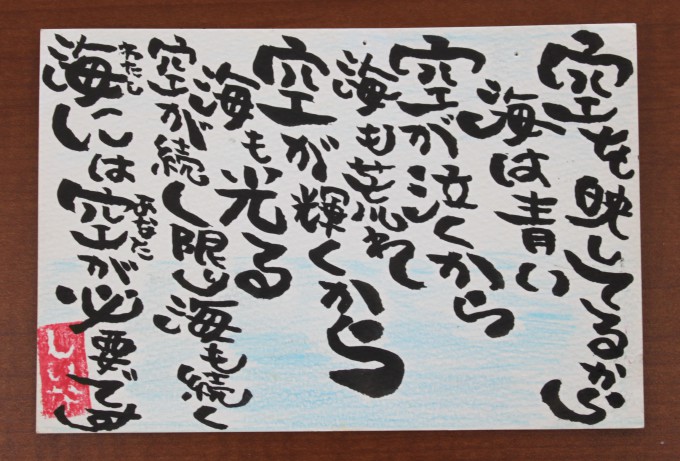 空を映してるから
海は青い
空が泣くから
海も荒れ
空が輝くから
海も光る
空が続く限り海も続く
海には空が必要です
わたし
あなた